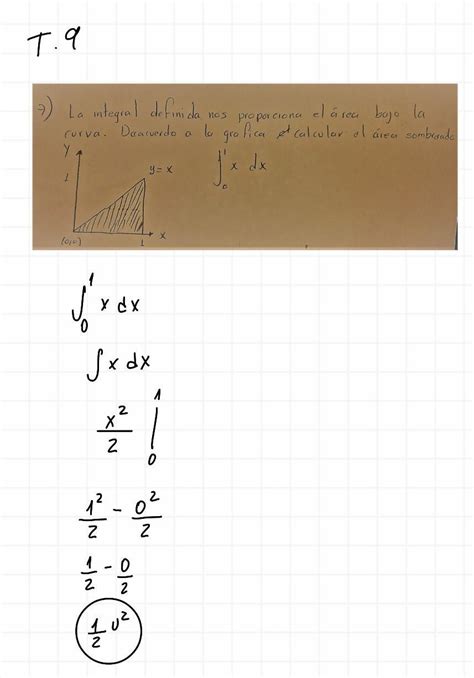 T.9
7) La integral definida nos proporciona el área bajo la
curva. Deacuerdo a la grafica calcular el área sombreada
Y
1
y = x
∫₀¹ x dx
(0,0)
1
x
∫₀¹ x dx
∫ x dx
x²/2 |₀¹
1²/2 - 0²/2
1/2 - 0/2
1/2 u²